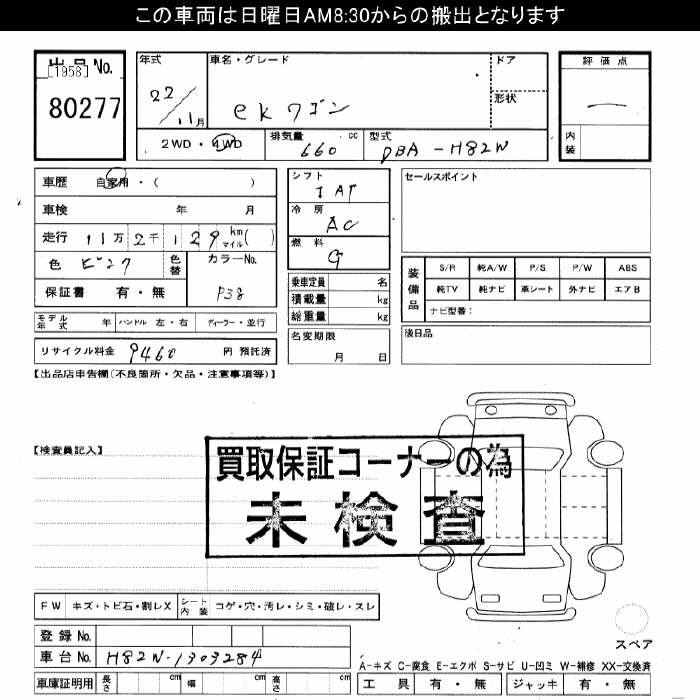 この車両は日曜日AM8:30からの搬出となります
出品No.
[1958]
80277
年式
22/11月
車名・グレード
ekワゴン
ドア
形状
評価点
—
内装
2WD・4WD
排気量
660 cc
型式
DBA-H82W
車歴 自家用・( )
車検 年 月
走行 11万2千129 km マイル( )
色 ピンク
色替
カラーNo.
P38
保証書 有・無
シフト
IAT
冷房
AC
燃料
G
乗車定員 名
積載量 kg
総重量 kg
名変期限
月 日
セールスポイント
装備品
S/R 純A/W P/S P/W ABS
純TV 純ナビ 革シート 外ナビ エアB
ナビ型番:
後日品
モデル年式 年 ハンドル 左・右 ディーラー・並行
リサイクル料金 9460 円 預託済
【出品店申告欄(不良箇所・欠品・注意事項等)】
【検査員記入】
買取保証コーナーの為
未検査
FW キズ・トビ石・割レX シート内装 コゲ・穴・汚レ・シミ・破レ・スレ
スペア
登録No.
車台No. H82W-1303284
A-キズ C-腐食 E-エクボ S-サビ U-凹ミ W-補修 XX-交換済
車庫証明用 長さ cm 幅 cm 高さ cm
工具 有・無 ジャッキ 有・無